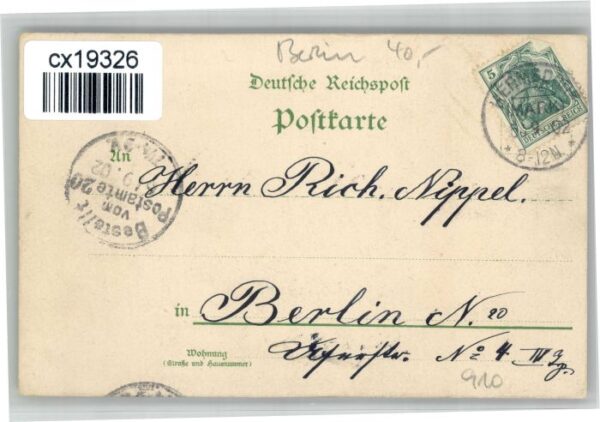 cx19326
Berlin 40,-
Deutsche Reichspost
Postkarte
5
DEUTSCHES REICH
HERMSD
(MARK)
02
* 8-12N *
Bestellt
vom
Postamte 20
9.02
An Herrn Rich. Nippel.
in Berlin N. 20
Wohnung
(Straße und Hausnummer)
No 4 III
910